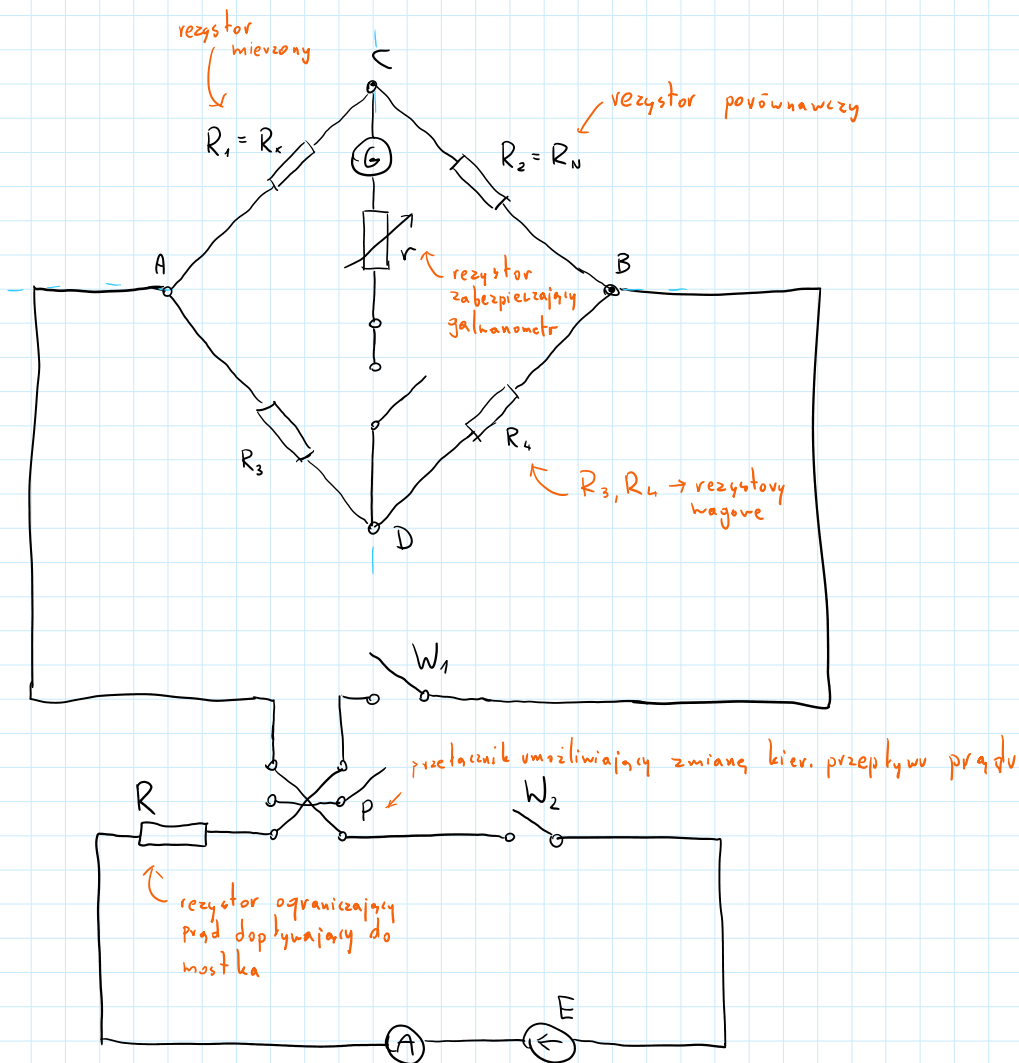 rezystor
mierzony
C
rezystor porównawczy
R₁ = Rₓ
G
R₂ = R_N
A
r
B
rezystor
zabezpieczający
galwanometr
R₃
R₄
R₃, R₄ → rezystory
wagowe
D
W₁
przełącznik umożliwiający zmianę kier. przepływu prądu
R
P
W₂
rezystor ograniczający
prąd dopływający do
mostka
A
E